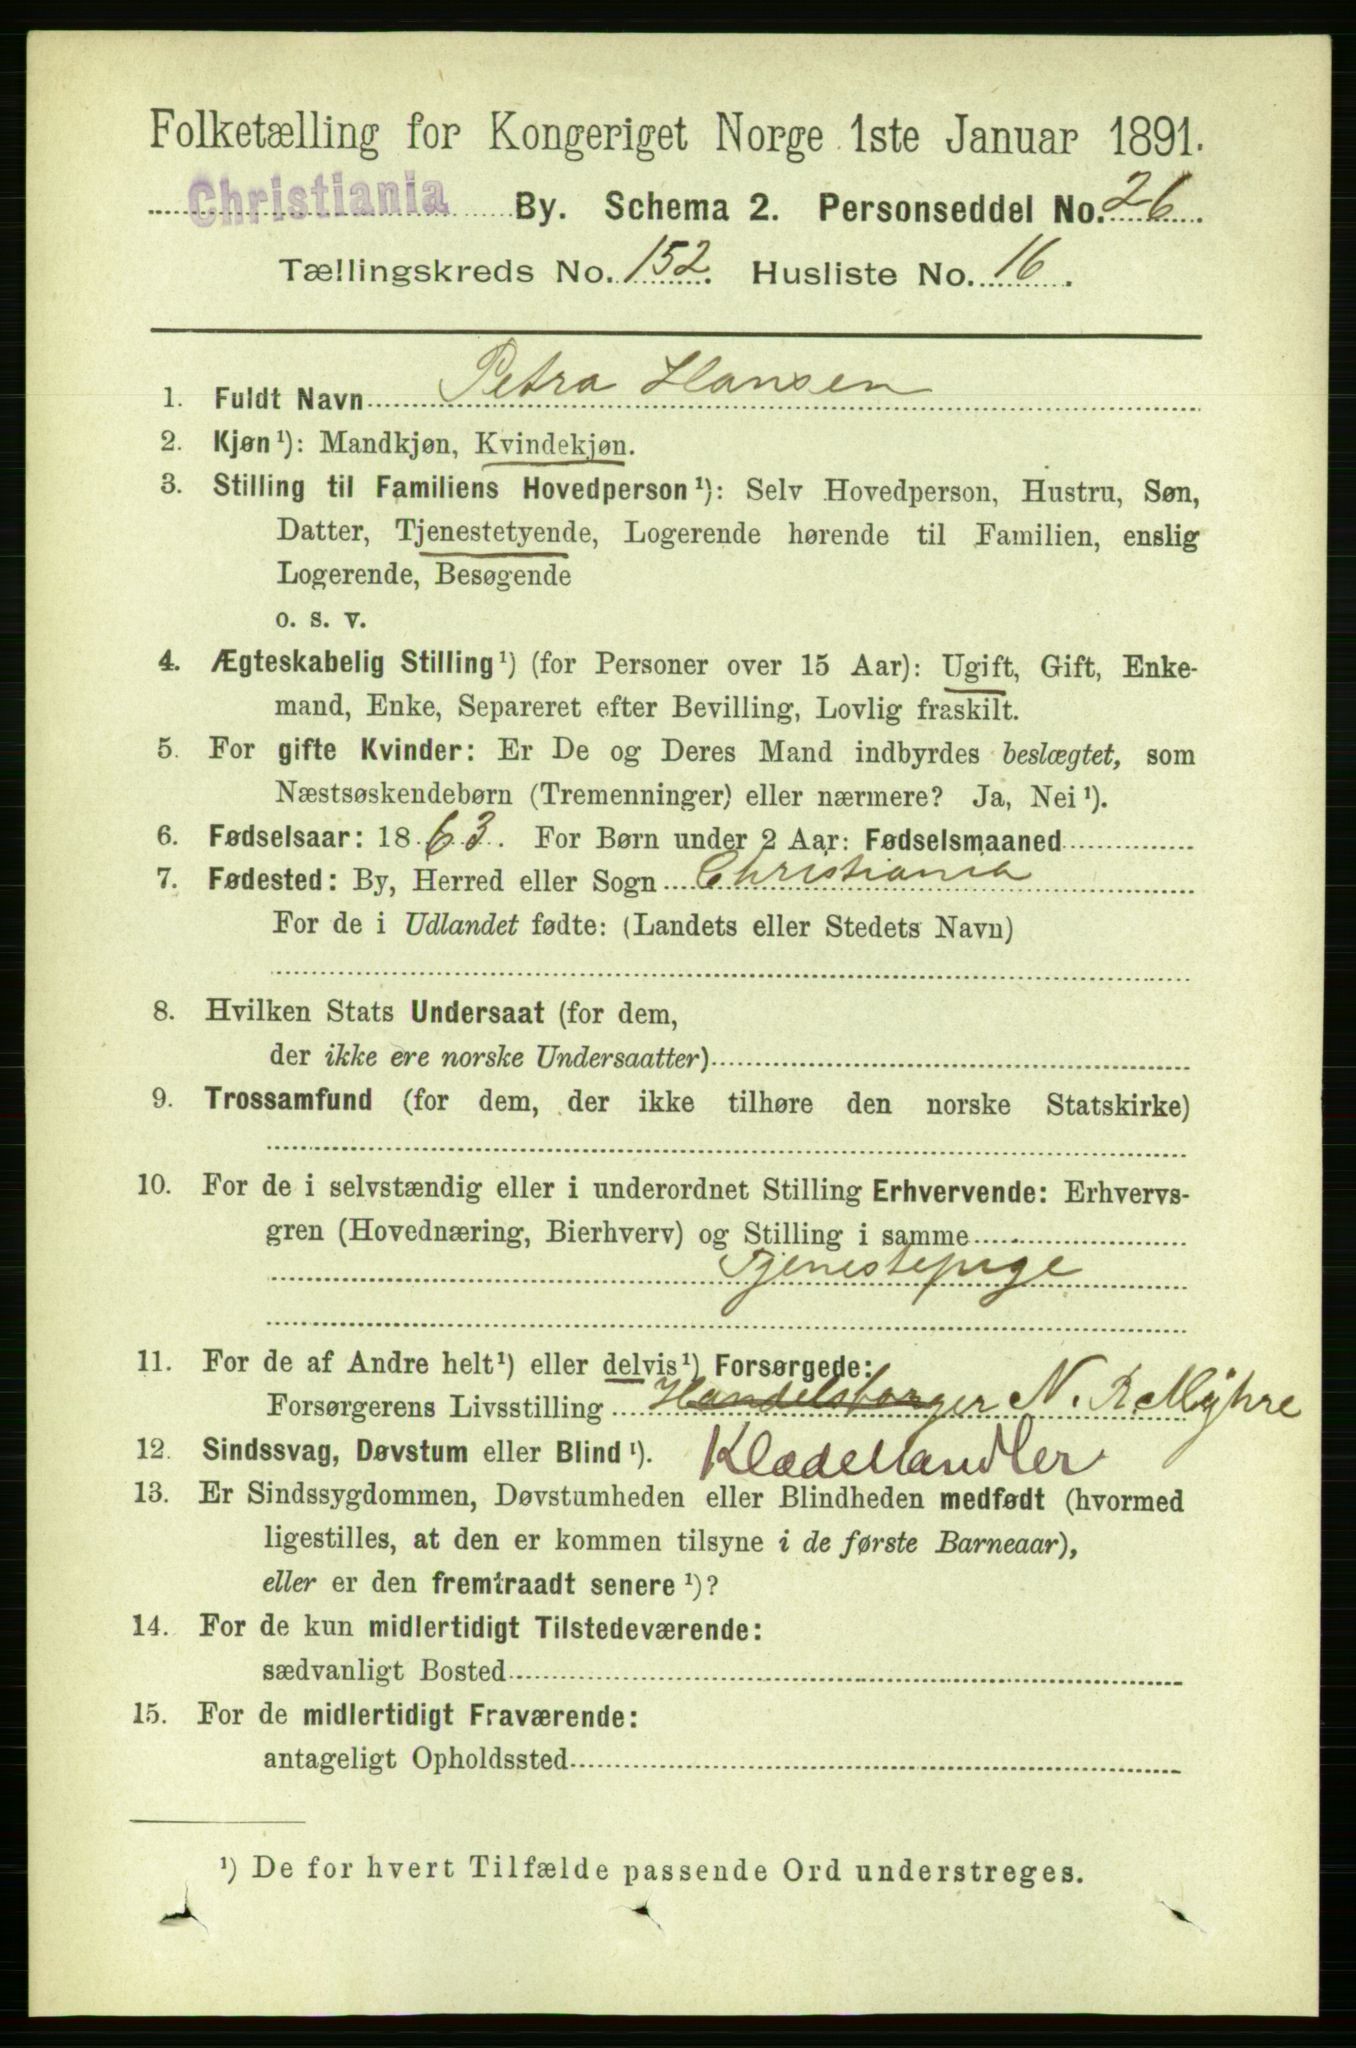 Folketælling for Kongeriget Norge 1ste Januar 1891.
Christiania By. Schema 2. Personseddel No. 26.
Tællingskreds No. 152. Husliste No. 16.
1. Fuldt Navn Petra Hansen
2. Kjøn¹): Mandkjøn, Kvindekjøn.
3. Stilling til Familiens Hovedperson¹): Selv Hovedperson, Hustru, Søn,
Datter, Tjenestetyende, Logerende hørende til Familien, enslig
Logerende, Besøgende
o. s. v.
4. Ægteskabelig Stilling¹) (for Personer over 15 Aar): Ugift, Gift, Enke-
mand, Enke, Separeret efter Bevilling, Lovlig fraskilt.
5. For gifte Kvinder: Er De og Deres Mand indbyrdes beslægtet, som
Næstsøskendebørn (Tremenninger) eller nærmere? Ja, Nei¹).
6. Fødselsaar: 1863. For Børn under 2 Aar: Fødselsmaaned
7. Fødested: By, Herred eller Sogn Christiania
For de i Udlandet fødte: (Landets eller Stedets Navn)
8. Hvilken Stats Undersaat (for dem,
der ikke ere norske Undersaatter)
9. Trossamfund (for dem, der ikke tilhøre den norske Statskirke)
10. For de i selvstændig eller i underordnet Stilling Erhvervende: Erhvervs-
gren (Hovednæring, Bierhverv) og Stilling i samme
Tjenestepige
11. For de af Andre helt¹) eller delvis¹) Forsørgede:
Forsørgerens Livsstilling Handelsborger N. R. Myhre
12. Sindssvag, Døvstum eller Blind¹). Klædehandler
13. Er Sindssygdommen, Døvstumheden eller Blindheden medfødt (hvormed
ligestilles, at den er kommen tilsyne i de første Barneaar),
eller er den fremtraadt senere¹)?
14. For de kun midlertidigt Tilstedeværende:
sædvanligt Bosted
15. For de midlertidigt Fraværende:
antageligt Opholdssted
¹) De for hvert Tilfælde passende Ord understreges.